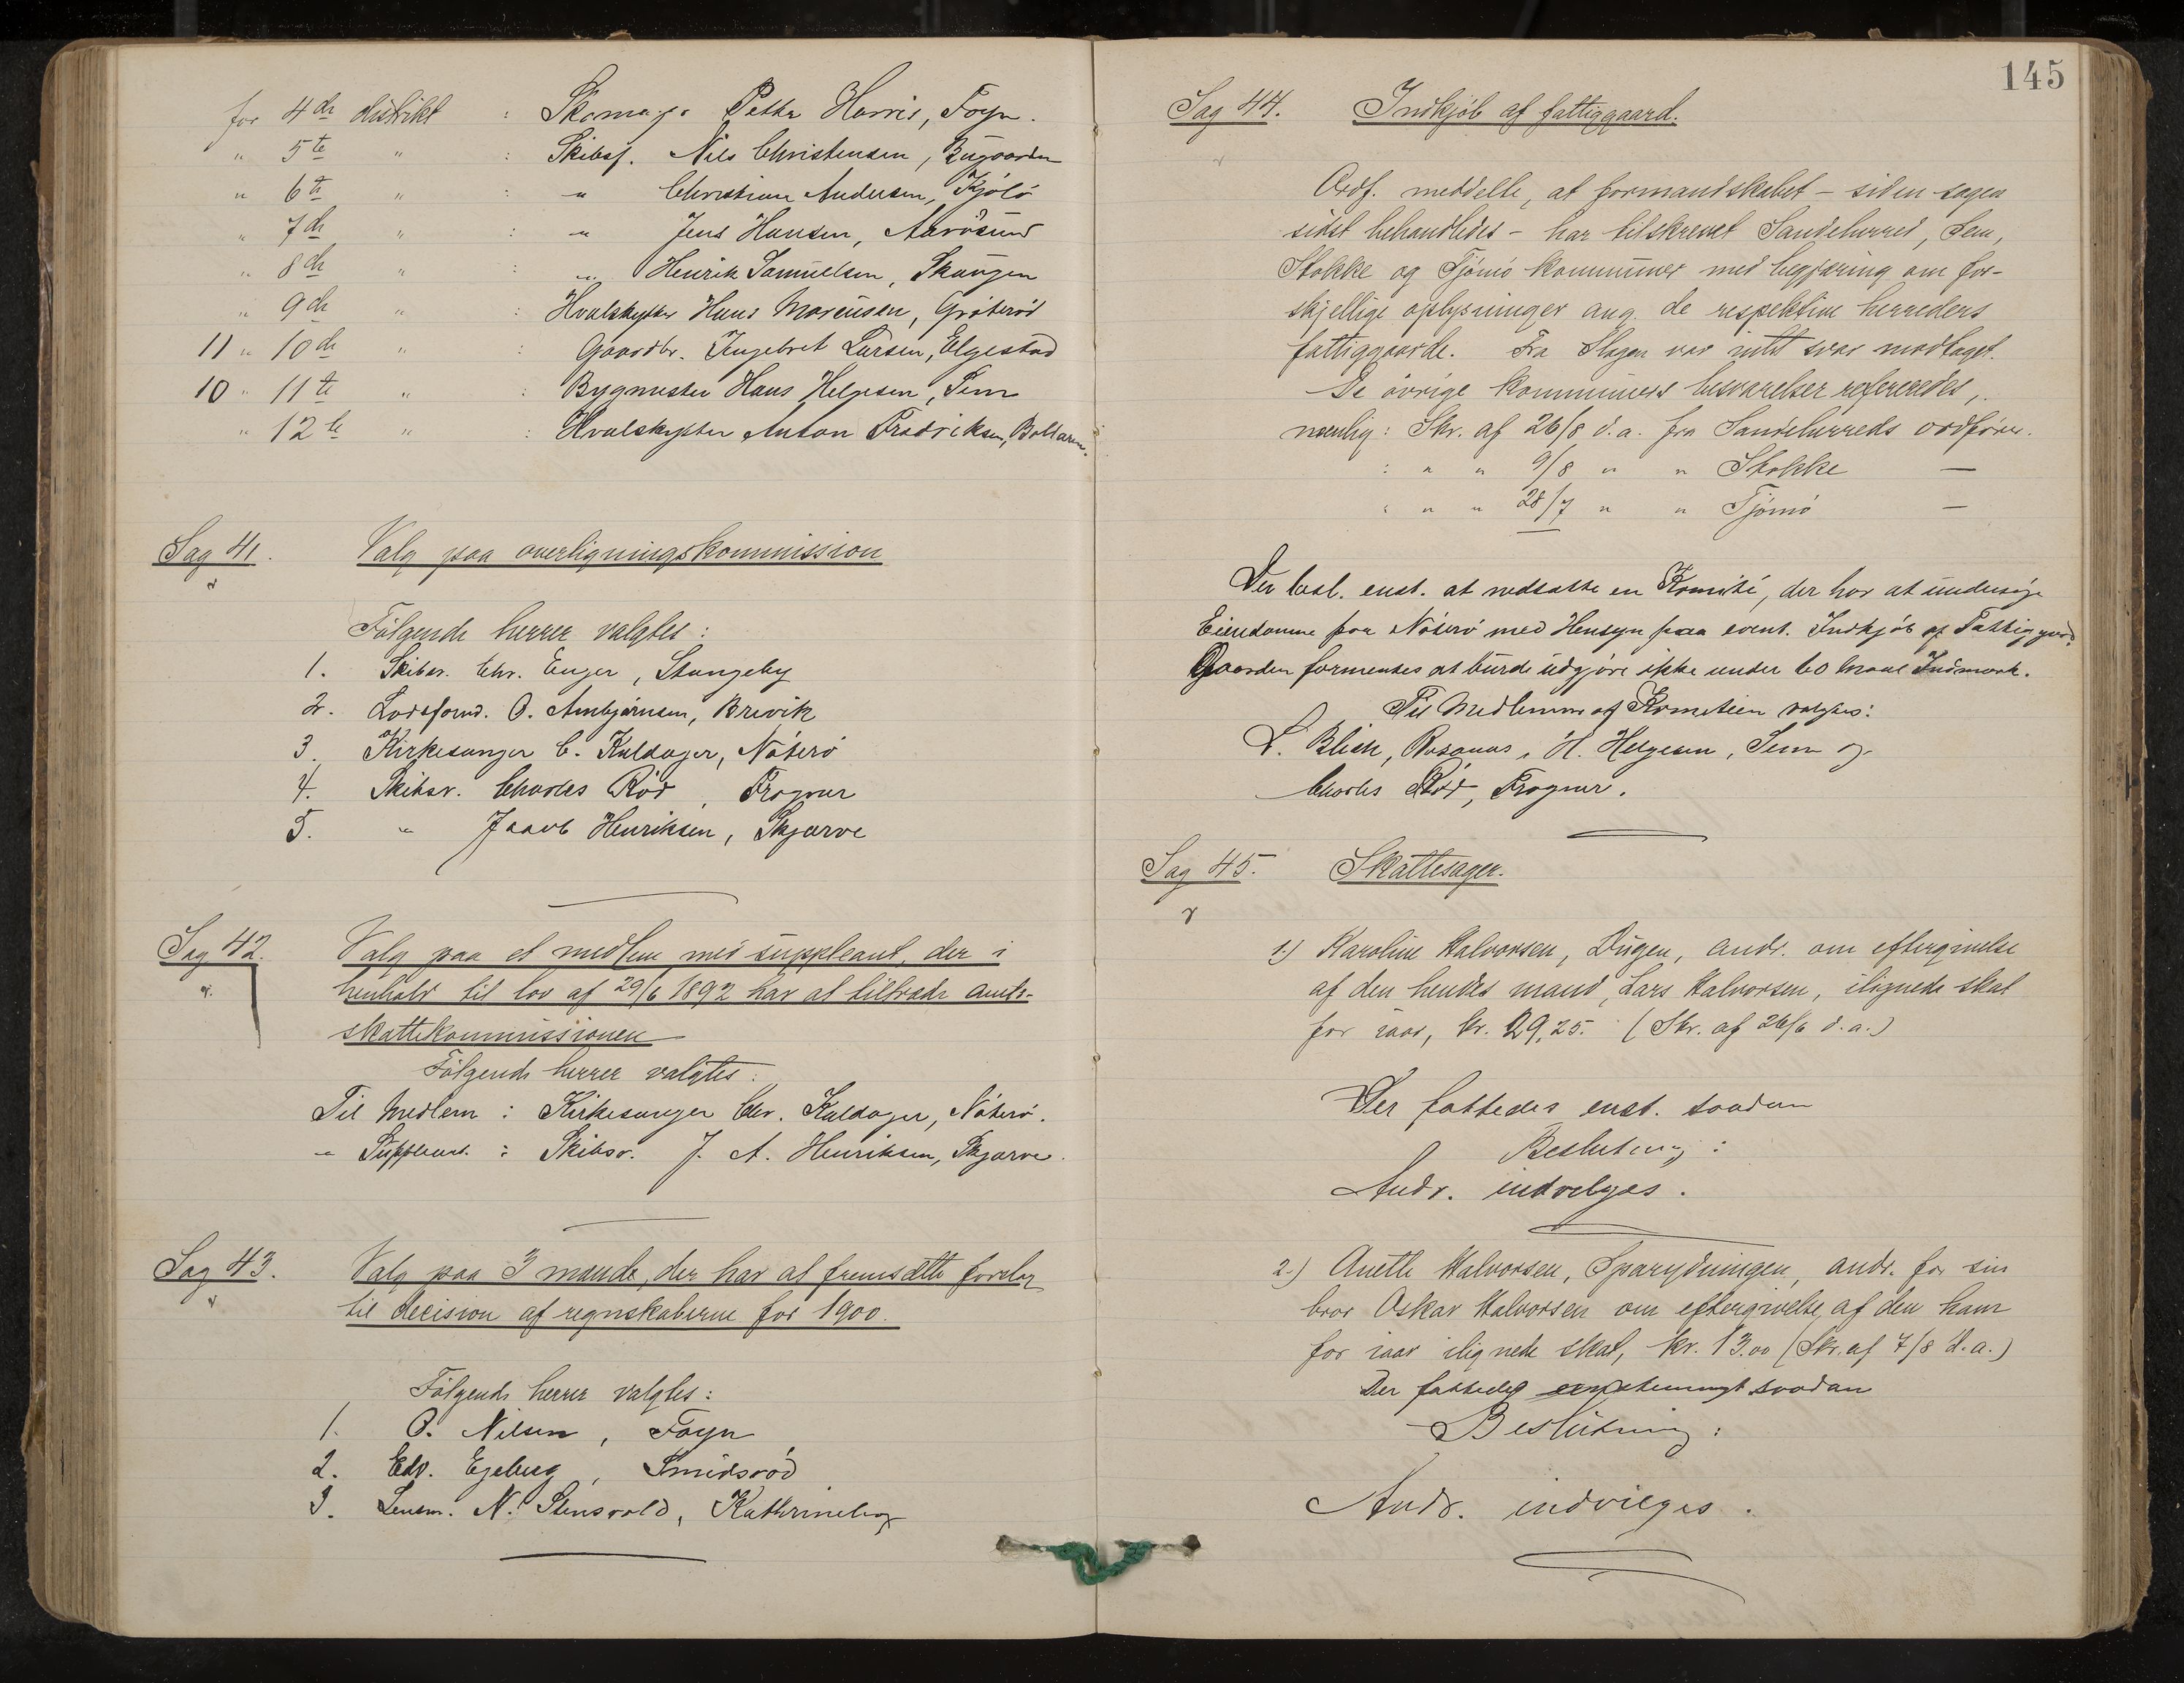 for 4de distrikt : Skomag. Petter Harris, Foyn.
" 5te " : Skibsf. Nils Christensen, Bugaarden
" 6te " : " Christian Andersen, Kjölö
" 7de " : " Jens Hansen, Aarösund
" 8de " : " Henrik Samuelsen, Skaugen
" 9de " : Hvalskytter Hans Marcussen, Gröterød
11 " 10de " : Gaardbr. Ingebret Larsen, Elgestad
10 " 11te " : Bygmester Hans Helgesen, Sem
" 12te " : Hvalskytter Anton Fredriksen, Bollæren.
Sag 41. Valg paa overligningskommission
Følgende herrer valgtes:
1. Skibsr. Chr. Enger, Stangeby
2. Lodsformd. O. Ambjørnsen, Brevik
3. Kirkesanger C. Kaldager, Nöterö
4. Skibsr. Charles Röd, Frogner
5. " Jacob Henriksen, Skjærve
Sag 42. Valg paa et medlem med suppleant, der i
henhold til lov af 29/6 1892 har at tiltræde amts-
skattekommissionen
Følgende herrer valgtes:
Til Medlem : Kirkesanger Chr. Kaldager, Nöterö.
" Suppleant : Skibsr. J. A. Henriksen, Skjærve.
Sag 43. Valg paa 3 mænd, der har at fremsætte forslag
til decision af regnskaberne for 1900.
Følgende herrer valgtes:
1. O. Nilsen, Foyn
2. Edv. Egeberg, Smidsröd
3. Lensm. N. Stensvold, Kathrineborg
145
Sag 44. Indkjöb af fattiggaard.
Ordf. meddelte, at formandskabet – siden sagen
sidst behandledes – har tilskrevet Sandeherred, Sem,
Stokke og Tjömö kommuner med begjæring om for-
skjellige oplysninger ang. de respektive herreders
fattiggaarde. Fra Slagen var intet svar modtaget.
De övrige kommuners besvarelser refereredes,
nemlig: Skr. af 26/8 d.a. fra Sandeherreds ordförer.
: " " 9/8 " " Stokke —
" " " 28/7 " " Tjömö —
Der besl. enst. at nedsætte en Komité, der har at undersöge
Eiendomme paa Nöterö med Hensyn paa event. Indkjöb af Fattiggaard.
Gaarden formentes at burde udgjöre ikke under 60 Maal Indmark.
Til Medlemmer af Komiteen valgtes:
L. Blich, Rosanes, H. Helgesen, Sem og
Charles Röd, Frogner.
Sag 45. Skattesager.
1.) Karoline Halvorsen, Dugen, andr. om eftergivelse
af den hendes mand, Lars Halvorsen, ilignede skat
for iaar, kr. 29,25. (Skr. af 26/6 d.a.)
Der fattedes enst. saadan
Beslutning:
Andr. indvilges.
2.) Anette Halvorsen, andr. for sin
bror Oskar Halvorsen om eftergivelse af den ham
for iaar ilignede skat, kr. 13.00 (Skr. af 7/8 d.a.)
Der fattedes enstemmigt saadan
Beslutning:
Andr. indvilges.